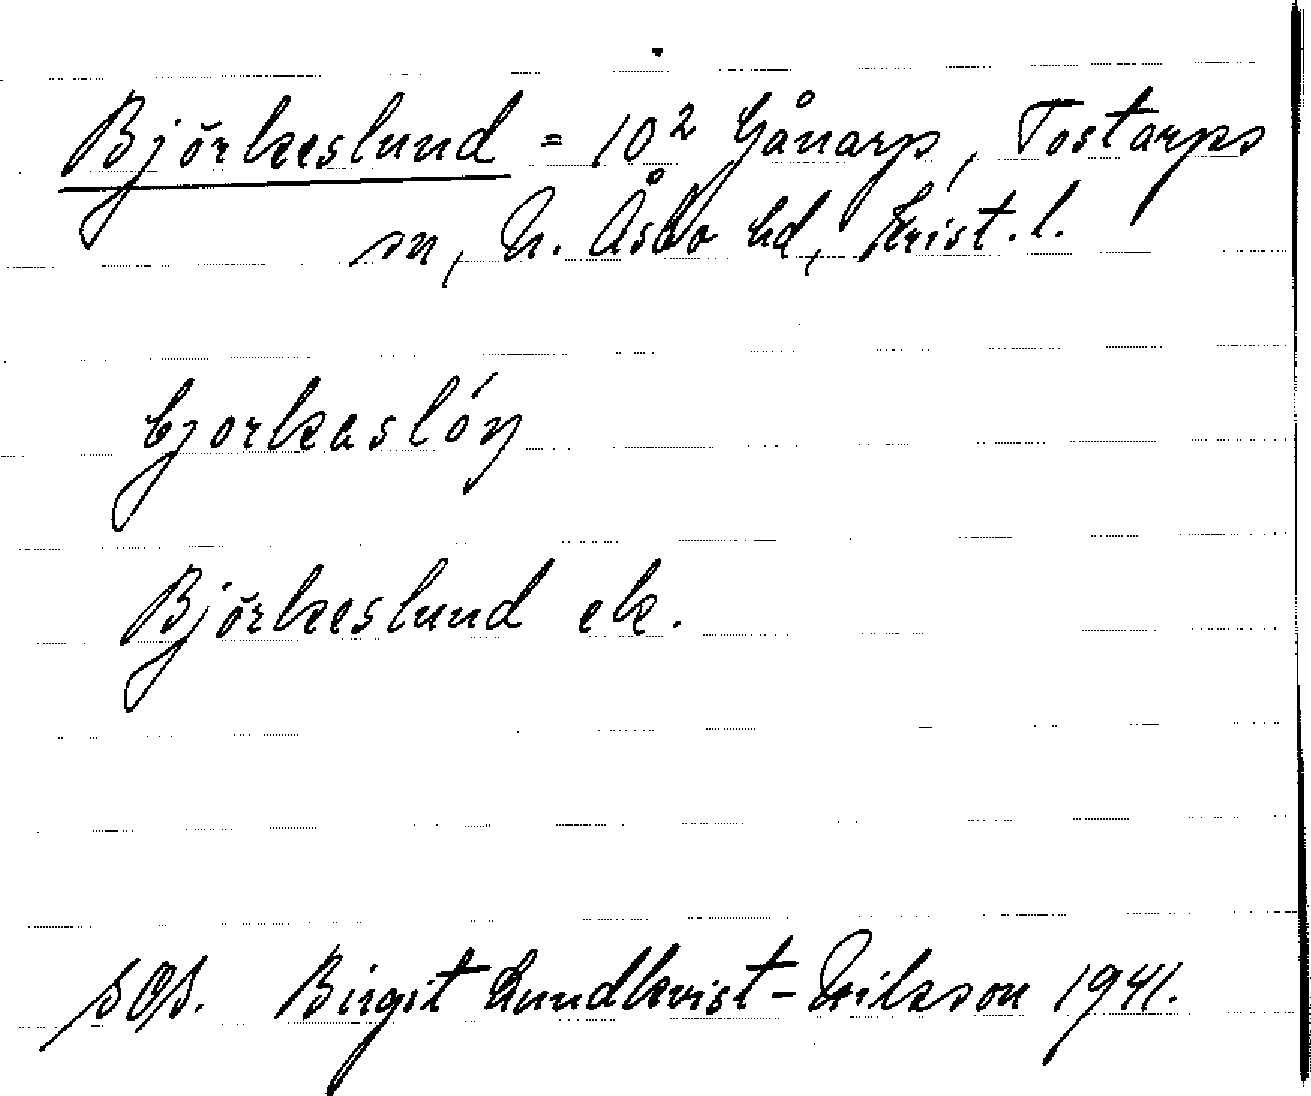 Björkeslund = 10² Gånarp, Tostarps
sn, N. Åsbo hd, Krist. l.
bjorkaslón
Björkeslund ek.
SOS. Birgit Lundkvist-Nilsson 1941.